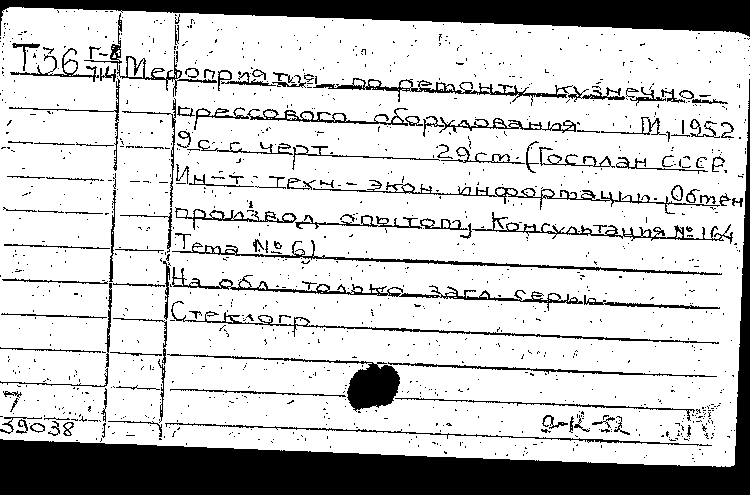 Т36 Г-8/714 Мероприятия по ремонту кузнечно-
прессового оборудования. М, 1952.
9с. с черт. 29см. (Госплан СССР.
Ин-т техн.-экон. информации. Обмен
производ. опытом, Консультация № 164.
Тема № 6)
На обл. только загл. серии.
Стеклогр.
7
39038
9-12-52